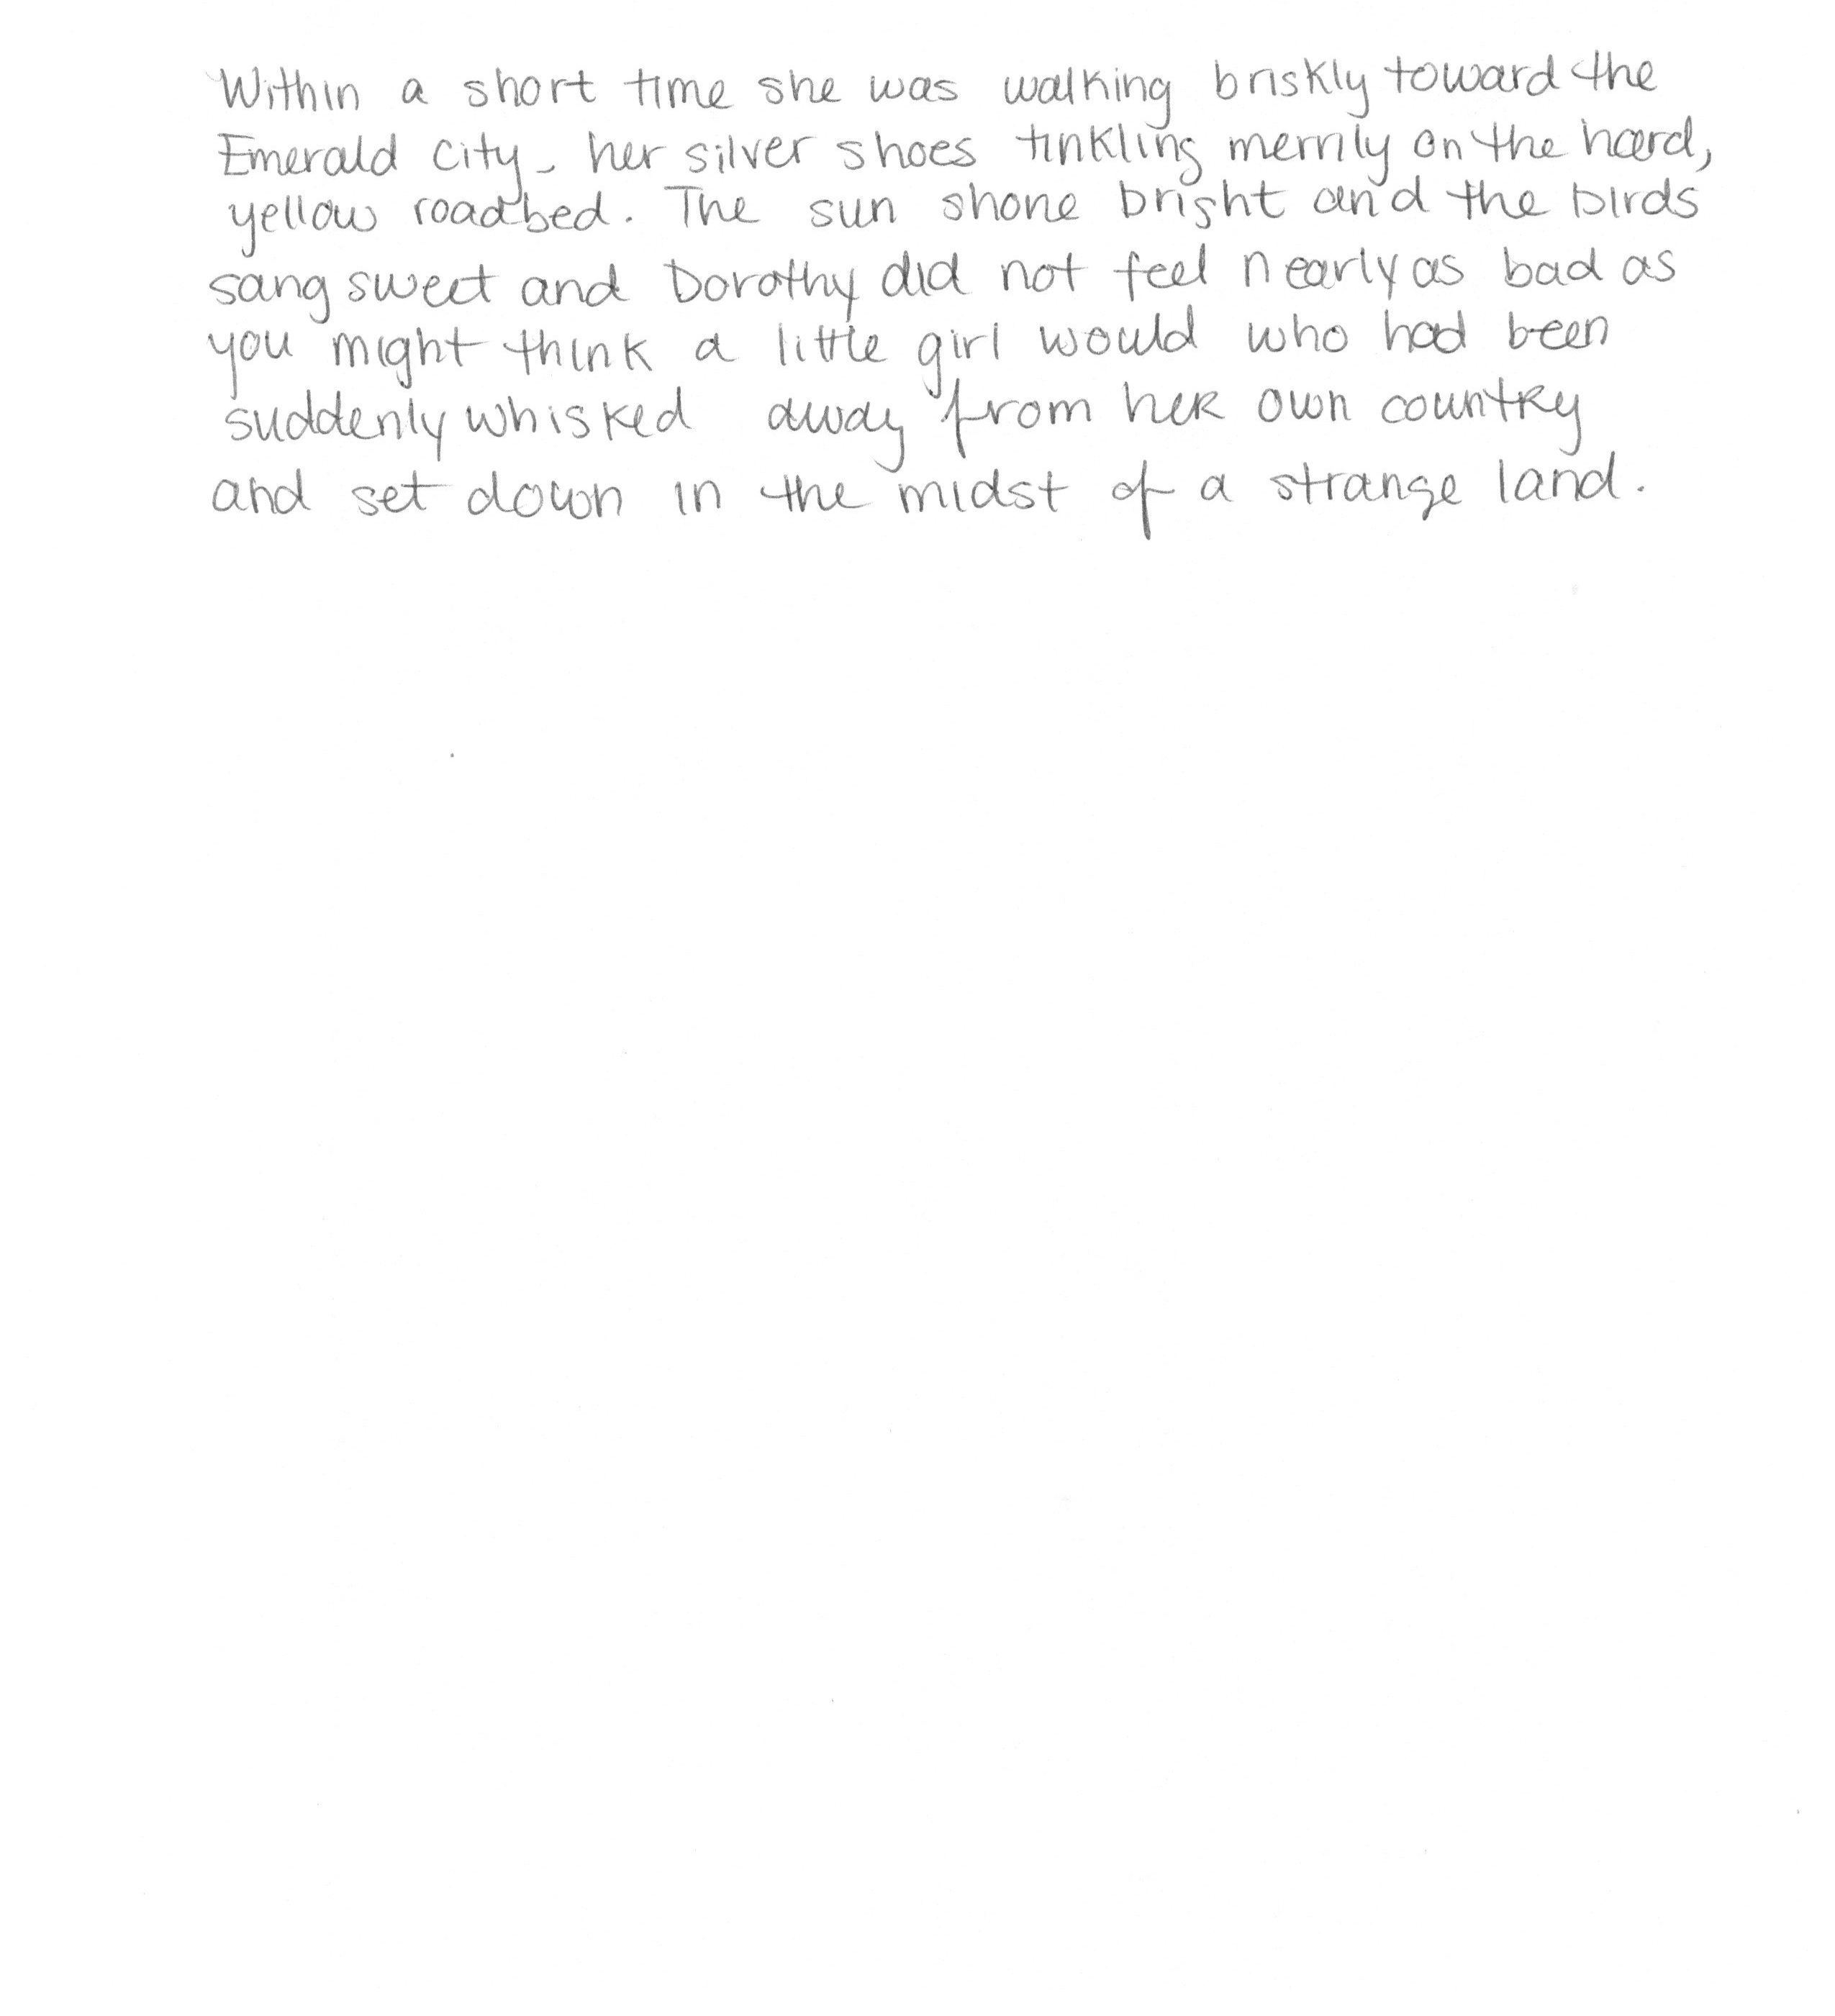 Within a short time she was walking briskly toward the
Emerald city, her silver shoes tinkling merrily on the hard,
yellow roadbed. The sun shone bright and the birds
sang sweet and Dorothy did not feel nearly as bad as
you might think a little girl would who had been
suddenly whisked away from her own country
and set down in the midst of a strange land.